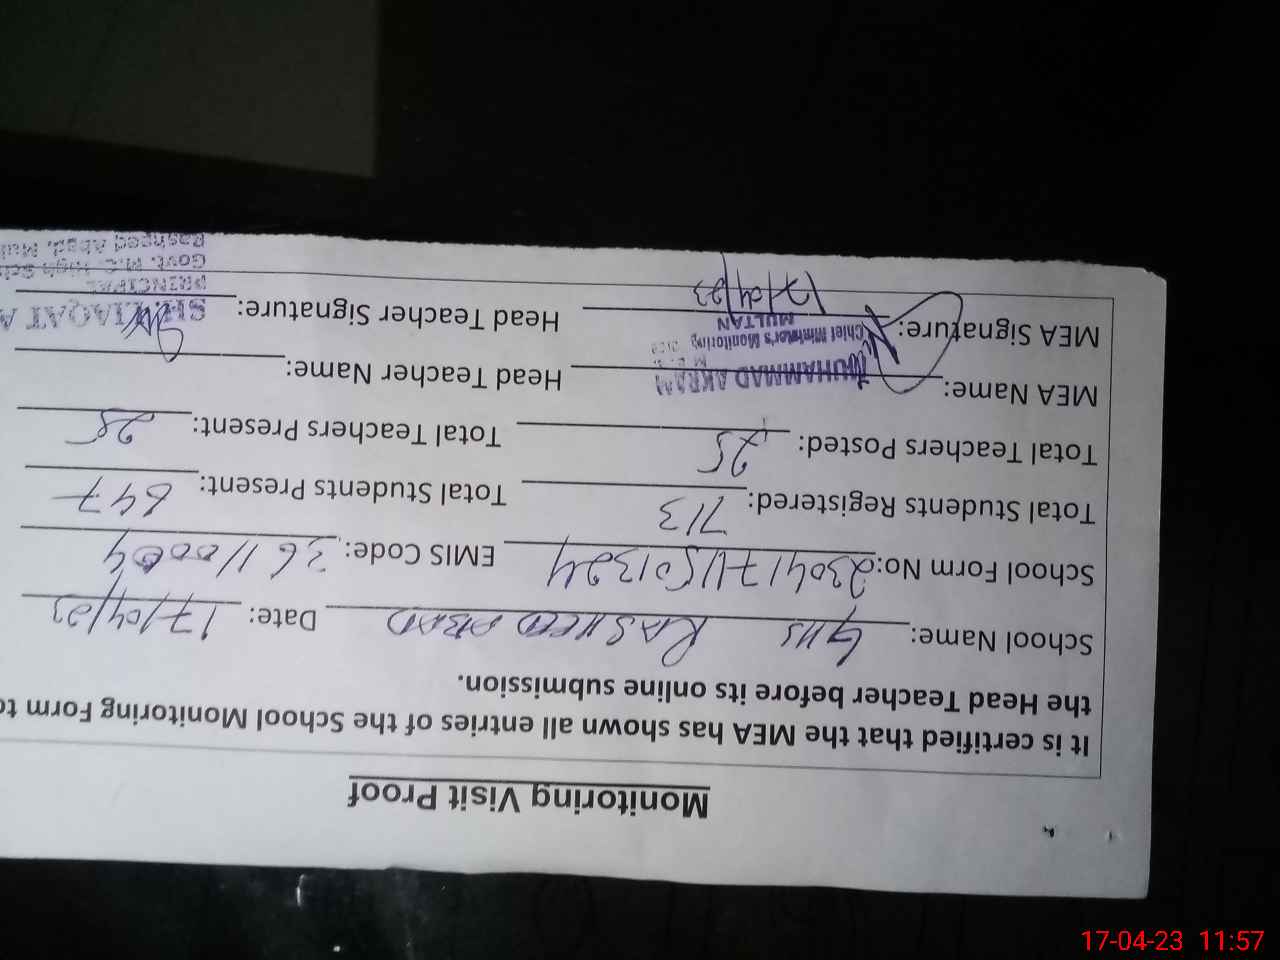 Monitoring Visit Proof
It is certified that the MEA has shown all entries of the School Monitoring Form to
the Head Teacher before its online submission.
School Name: GHS RASHEED ABAD Date: 17/04/23
School Form No: 23041711501324 EMIS Code: 36110004
Total Students Registered: 713 Total Students Present: 647
Total Teachers Posted: 25 Total Teachers Present: 25
MEA Name: MUHAMMAD AKRAM Head Teacher Name:
Chief Minister's Monitoring
MULTAN
MEA Signature: 17/04/23 Head Teacher Signature: SH. LIAQAT A
PRINCIPAL
Govt. M.C. High Sch
Rasheed Abad, Mul
17-04-23 11:57